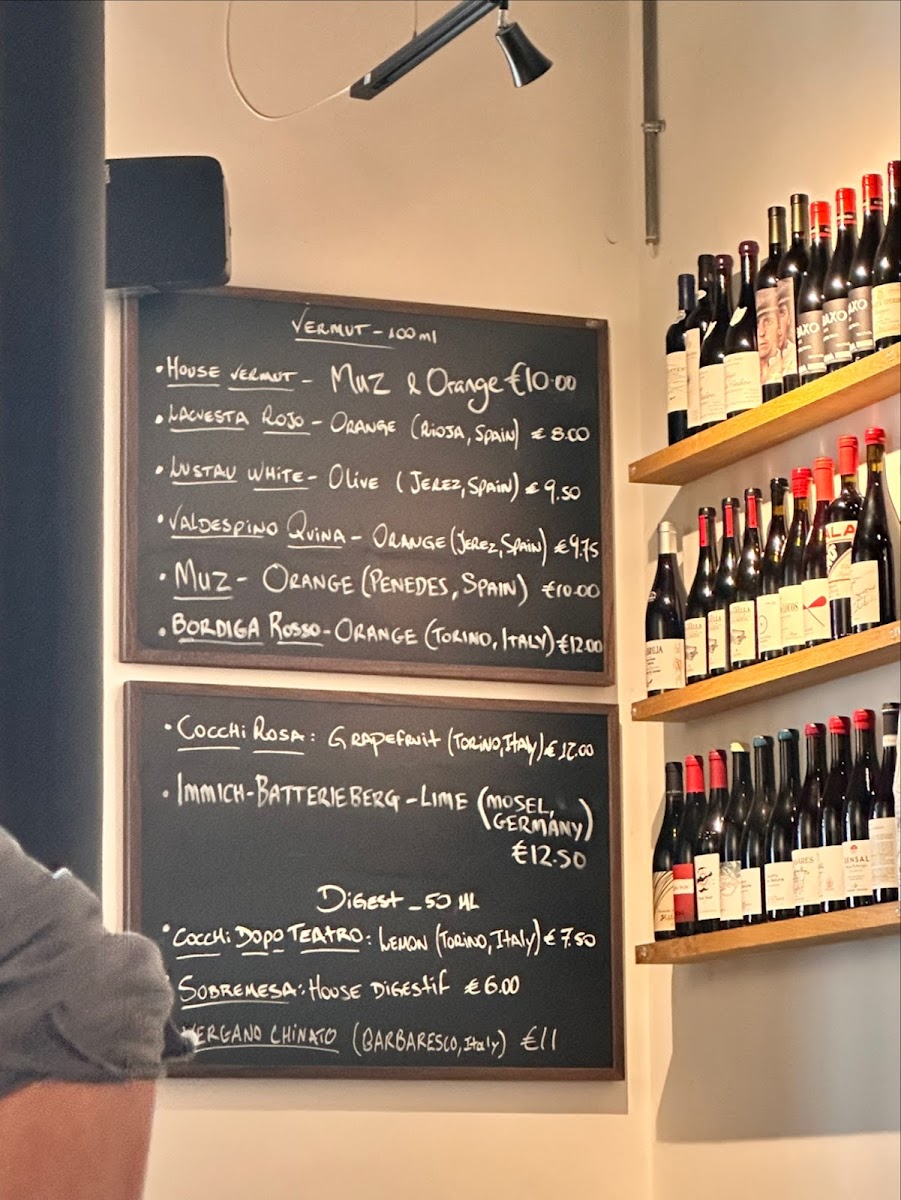 VERMUT - 100 ml
• HOUSE VERMUT - MUZ & ORANGE €10.00
• LACUESTA ROJO - ORANGE (RIOJA, SPAIN) € 8.00
• LUSTAU WHITE - OLIVE (JEREZ, SPAIN) € 9.50
• VALDESPINO QUINA - ORANGE (JEREZ, SPAIN) €9.75
• MUZ - ORANGE (PENEDES, SPAIN) €10.00
• BORDIGA ROSSO - ORANGE (TORINO, ITALY) €12.00
• COCCHI ROSA: GRAPEFRUIT (TORINO, ITALY) €12.00
• IMMICH-BATTERIEBERG - LIME (MOSEL,
GERMANY)
€12.50
DIGEST _ 50 ML
• COCCHI DOPO TEATRO: LEMON (TORINO, ITALY) € 7.50
SOBREMESA: HOUSE DIGESTIF € 6.00
VERGANO CHINATO (BARBARESCO, ITALY) €11